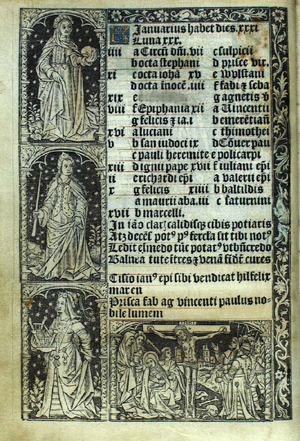 Januarius habet dies. xxxi
Luna xxx.
iiii a Circũ dñi. vii c sulpicii
b octa stephani d prisce vir.
xi c octa iohã xv e vvlstani
d octa inocẽ. iii f fabi z seba
xix e g agnetis v
viii f Epiphania xii a Vincentii
g felicis z ia. i b emerẽtian
xvi a luciani c thimothei
v b san iudoci ix d Cõuer pau
c pauli heremite e policarpi
xiii d igini pape xvii f iuliani epi
ii e richardi epi a valerii epi
x g felicis xiiii b baltildis
a mauri aba. iii c saturnini
xvii b marcelli.
In ião clar calidisq; cibis potiaris
Atz decẽt pot9 p9 fercla sit tibi not9
Ledit em medo tũc potat9 vt bñ credo
Balnea tute ītres z venã fīdẽ cures
Cisio ian9 epi sibi vendicat hil felix
mar en
Prisca fab ag vincenti paulus no-
bile lumem